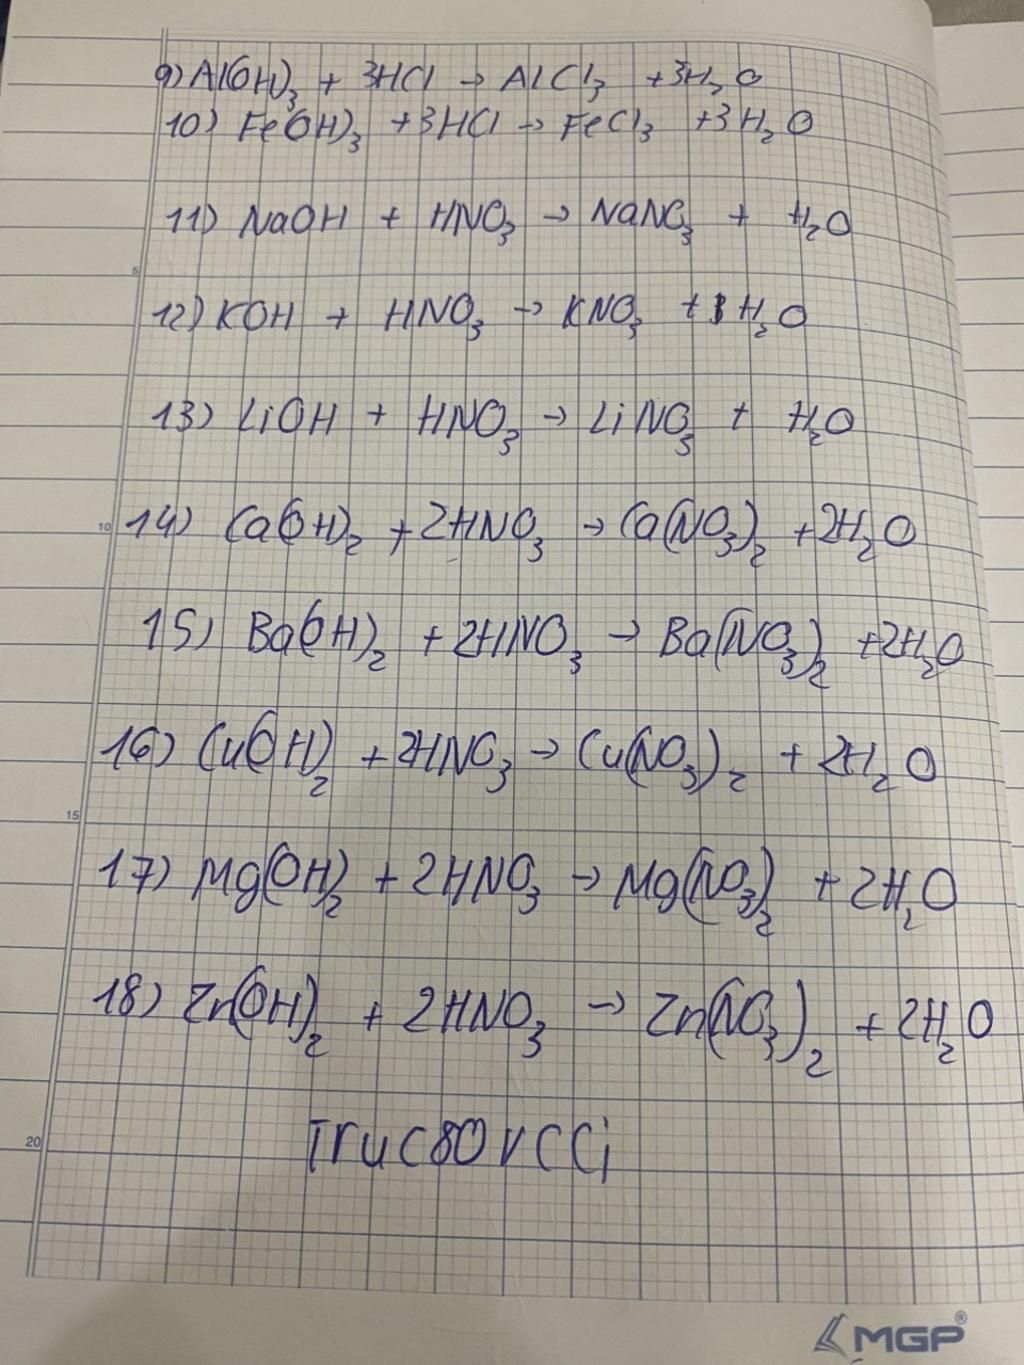 9) Al(OH)₃ + 3HCl → AlCl₃ + 3H₂O
10) Fe(OH)₃ + 3HCl → FeCl₃ + 3H₂O
11) NaOH + HNO₃ → NaNO₃ + H₂O
5
12) KOH + HNO₃ → KNO₃ + H₂O
13) LiOH + HNO₃ → LiNO₃ + H₂O
10
14) Ca(OH)₂ + 2HNO₃ → Ca(NO₃)₂ + 2H₂O
15) Ba(OH)₂ + 2HNO₃ → Ba(NO₃)₂ + 2H₂O
16) Cu(OH)₂ + 2HNO₃ → Cu(NO₃)₂ + 2H₂O
15
17) Mg(OH)₂ + 2HNO₃ → Mg(NO₃)₂ + 2H₂O
18) Zn(OH)₂ + 2HNO₃ → Zn(NO₃)₂ + 2H₂O
20
MGP®